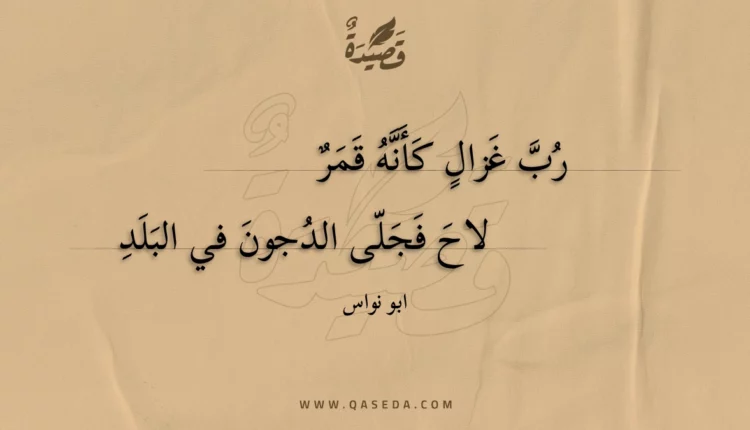 قَصِيْدَةٌ
رُبَّ غَزالٍ كَأَنَّهُ قَمَرٌ
لاحَ فَجَلّى الدُجونَ في البَلَدِ
ابو نواس
WWW.QASEDA.COM